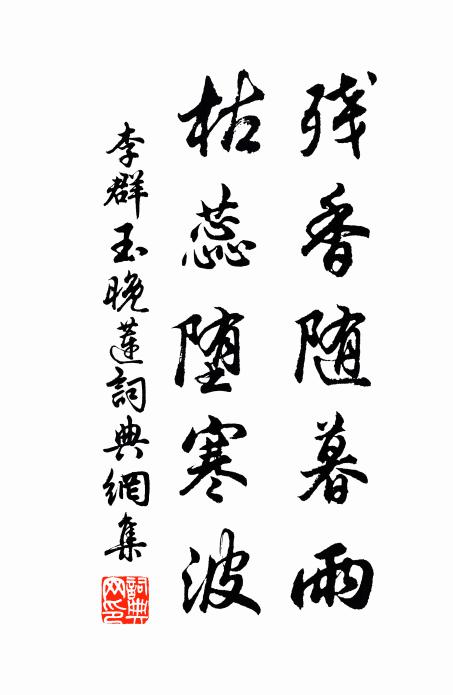 残香随暮雨
枯蕊堕寒波
李群玉晚莲詞典網集
詞典網印